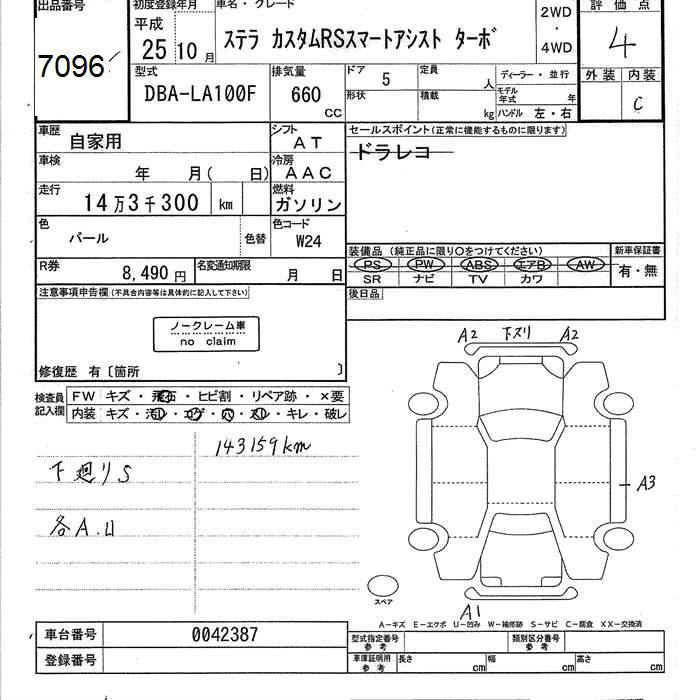 出品番号 初度登録年月 車名・グレード 評価点
7096
平成 25 10月 ステラ カスタムRSスマートアシスト ターボ 2WD・4WD 4
型式 排気量 ドア 5 定員 人 ディーラー・並行 外装 内装
DBA-LA100F 660 CC 形状 積載 kg モデル年式 年 C
ハンドル 左・右
車歴 自家用 シフト AT セールスポイント(正常に機能するものに限ります)
車検 年 月( 日) 冷房 AAC ドラレコ
走行 14万3千300 km 燃料 ガソリン
色 パール 色替 色コード W24
装備品 (純正品に限り○をつけてください) 新車保証書
R券 8,490円 名変通知期限 月 日 PS PW ABS エアB AW 有・無
SR ナビ TV カワ
注意事項申告欄(不具合内容等は具体的に記入して下さい) 後日品
ノークレーム車
no claim
修復歴 有〔箇所 〕
A2 下スリ A2
検査員記入欄 FW キズ・飛石・ヒビ割・リペア跡・×要
内装 キズ・汚レ・コゲ・穴・スレ・キレ・破レ
143159km
下廻りS
A3
各A.U
スペア
A1
A-キズ E-エクボ U-凹み W-補修跡 S-サビ C-腐食 XX-交換済
車台番号 0042387 型式指定番号 参考 類別区分番号 参考
登録番号 車庫証明用 参考 長さ cm 幅 cm 高さ cm